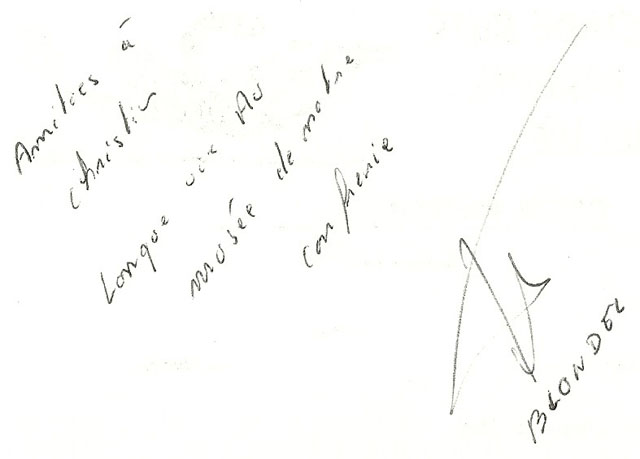 Amitiés à
Christian
Longue vie Au
musée de notre
confrérie
BLONDEL